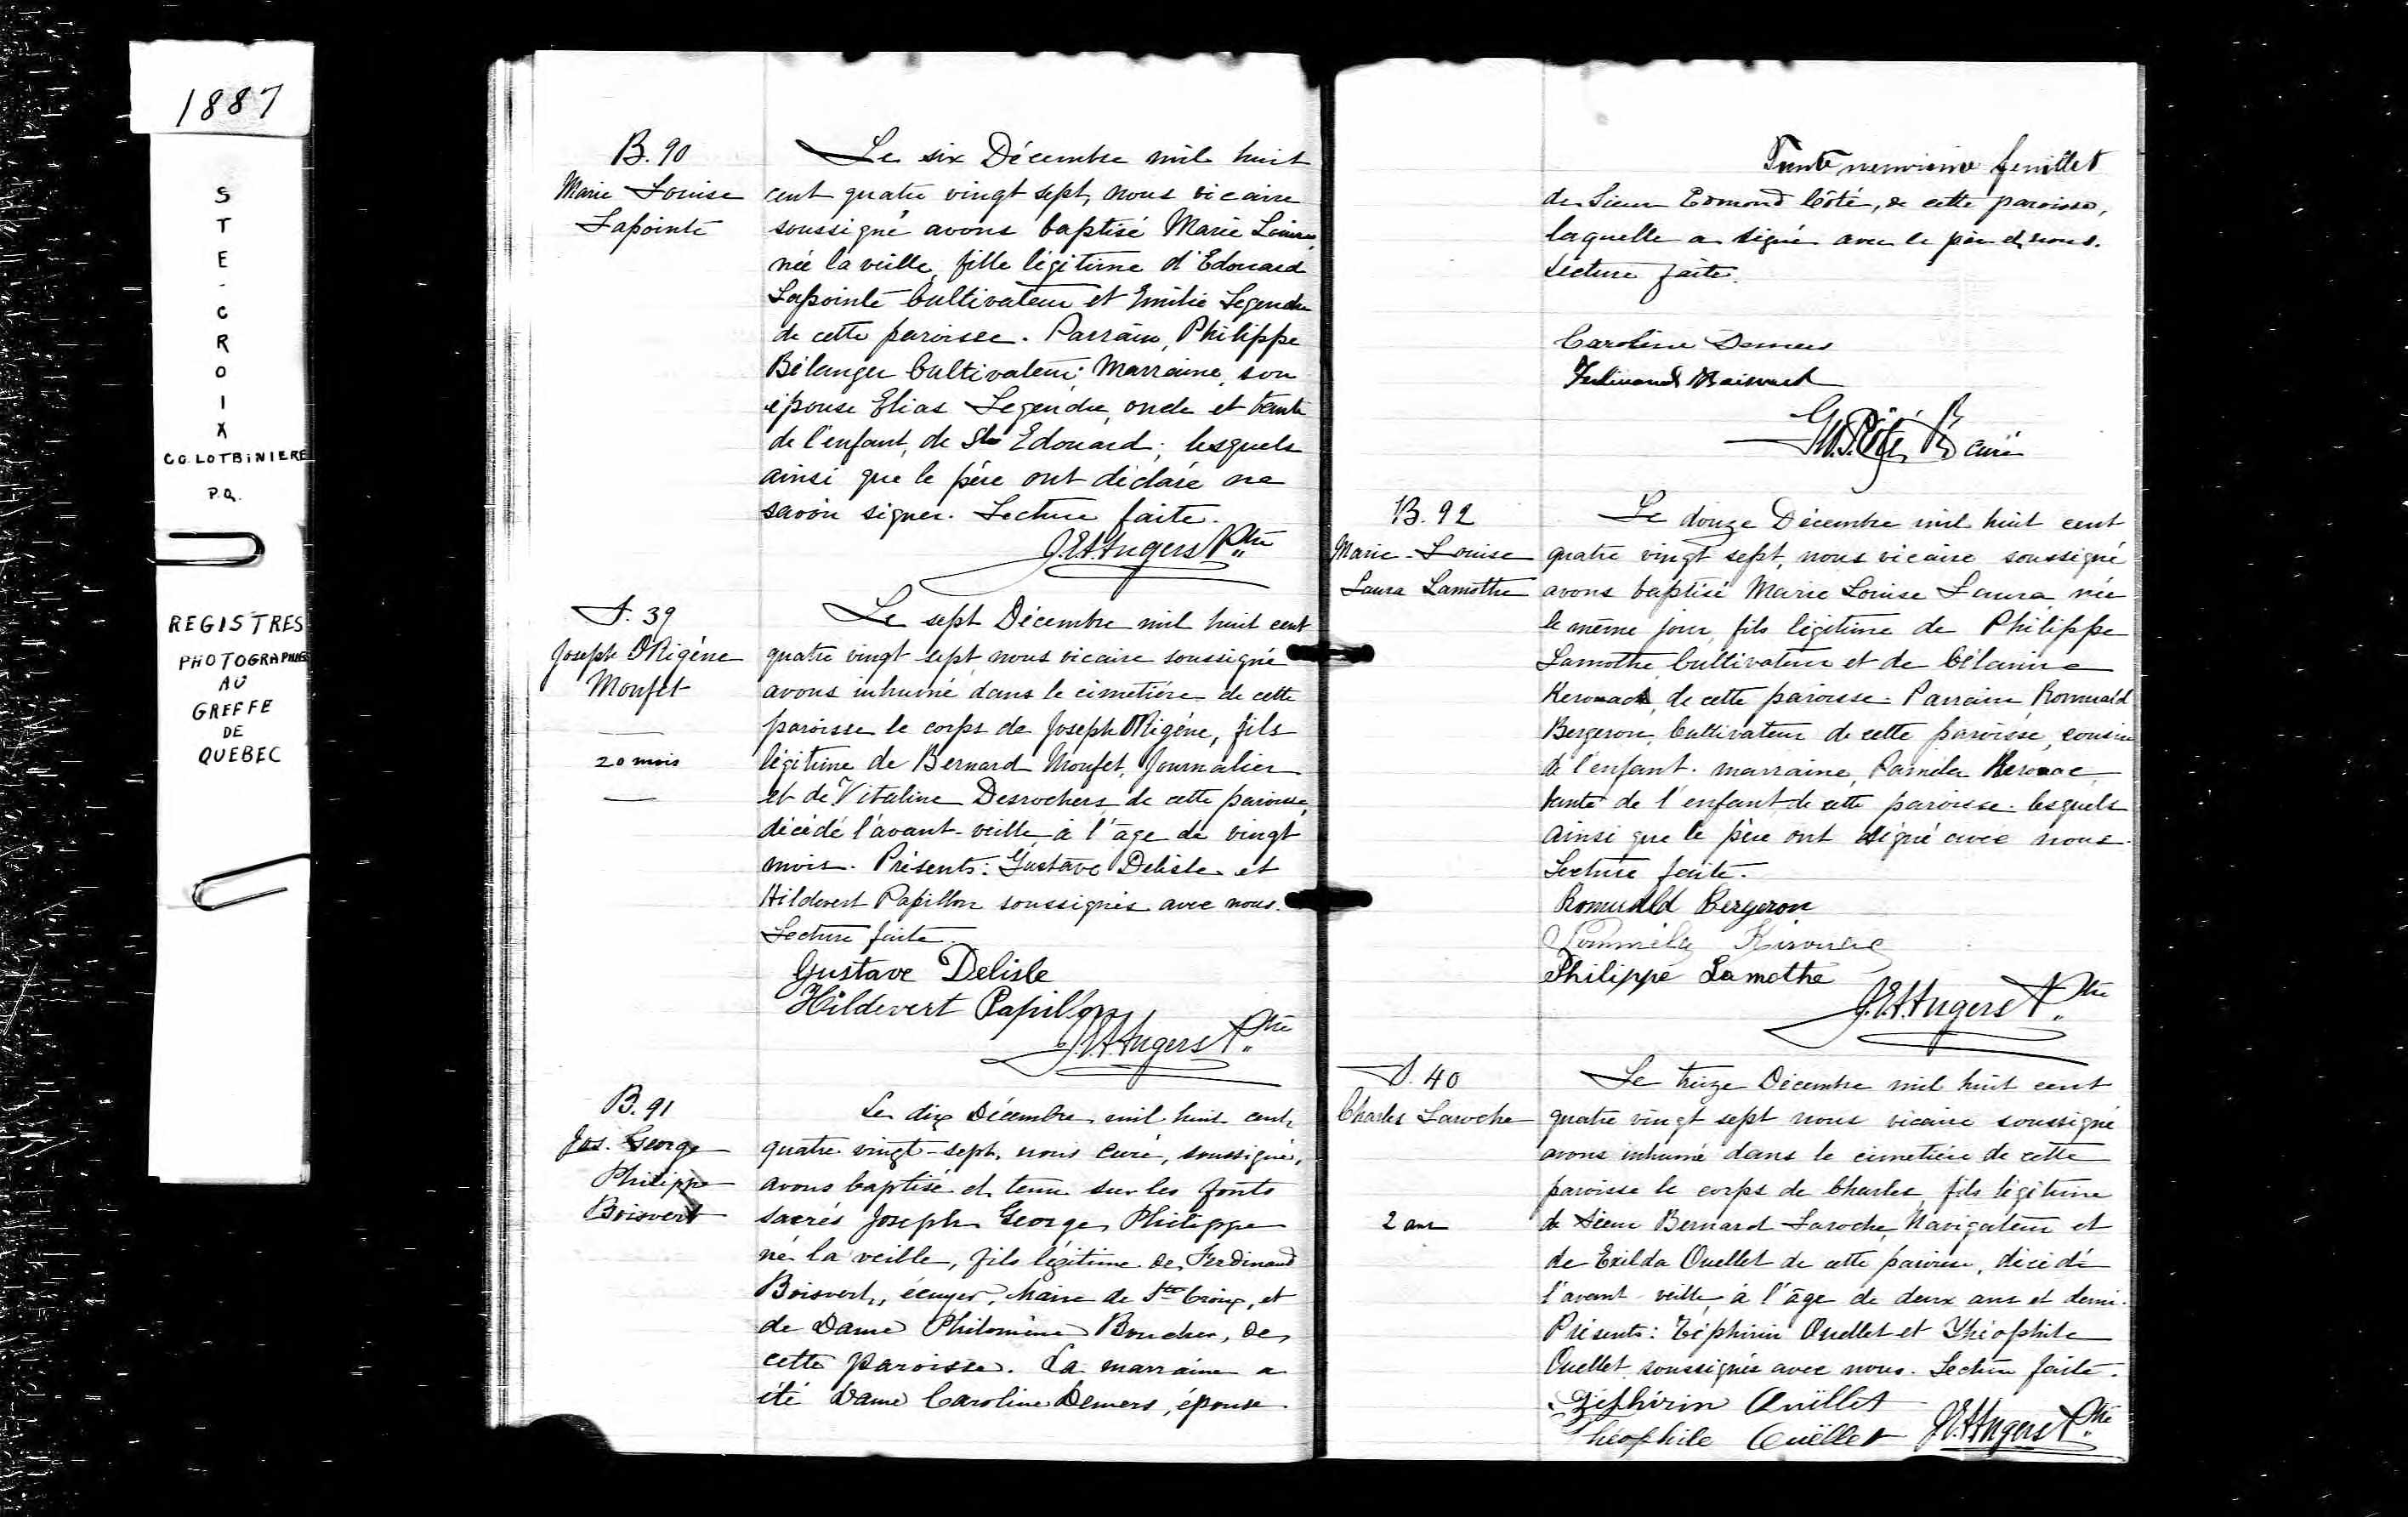 1887
STE-CROIX
CO. LOTBINIERE
P.Q.
REGISTRES
PHOTOGRAPHIES
AU
GREFFE
DE
QUEBEC
B. 90
Marie Louise
Lapointe
Le six Décembre mil huit
cent quatre vingt sept, nous vicaire
soussigné avons baptisé Marie Louise,
née la veille, fille légitime d'Edouard
Lapointe Cultivateur et Emilie Legendre
de cette paroisse. Parrain, Philippe
Bélanger Cultivateur; Marraine, son
épouse Elias Legendre, oncle et tante
de l'enfant, de St Edouard; lesquels
ainsi que le père ont déclaré ne
savoir signer. Lecture faite.
J.E.A. Angers Ptre
S. 39
Joseph ORigène
Monfet
20 mois
Le sept Décembre mil huit cent
quatre vingt sept nous vicaire soussigné
avons inhumé dans le cimetière de cette
paroisse le corps de Joseph ORigène, fils
légitime de Bernard Monfet, Journalier
et de Vitaline Desrochers de cette paroisse,
décédé l'avant-veille à l'âge de vingt
mois. Présents: Gustave Delisle et
Hildevert Papillon soussignés avec nous.
Lecture faite.
Gustave Delisle
Hildevert Papillon
J.E.A. Angers Ptre
B. 91
Jos. George
Philippe
Boisvert
Le dix Décembre mil huit cent
quatre vingt-sept, nous Curé, soussigné,
avons baptisé et tenu sur les fonts
sacrés Joseph George Philippe
né la veille, fils légitime de Ferdinand
Boisvert, écuyer, Maire de Ste Croix, et
de Dame Philomène Boucher, de
cette paroisse. La marraine a
été Dame Caroline Demers, épouse
Trente neuvième feuillet
de Sieur Edmond Côté, de cette paroisse,
laquelle a signé avec le père et nous.
Lecture faite.
Caroline Demers
Ferdinand Boisvert
Ptre curé
B. 92
Marie-Louise
Laura Lamothe
Le douze Décembre mil huit cent
quatre vingt sept, nous vicaire soussigné
avons baptisé Marie Louise Laura née
le même jour, fils légitime de Philippe
Lamothe, Cultivateur et de Célanire
Kerouack, de cette paroisse. Parrain Romuald
Bergeron, Cultivateur de cette paroisse, cousin
de l'enfant. marraine, Pamela Kerouac
tante de l'enfant de cette paroisse. lesquels
ainsi que le père ont signé avec nous.
Lecture faite.
Romuald Bergeron
Pommela Kirouac
Philippe Lamothe
J.E.A. Angers Ptre
S. 40
Charles Laroche
2 ans
Le treize Décembre mil huit cent
quatre vingt sept nous vicaire soussigné
avons inhumé dans le cimetière de cette
paroisse le corps de Charles, fils légitime
de Sieur Bernard Laroche, Navigateur et
de Exilda Ouellet de cette paroisse, décédé
l'avant-veille, à l'âge de deux ans et demi.
Présents: Zéphirin Ouellet et Théophile
Ouellet soussignés avec nous. Lecture faite.
Zéphirin Ouëllet
Théophile Ouëllet J.E.A. Angers Ptre